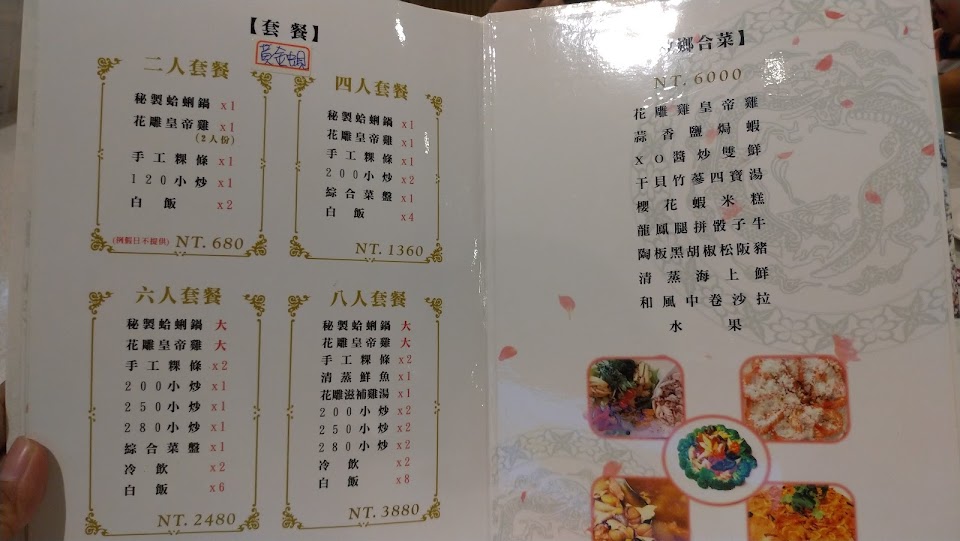 【套餐】
黃金蜆
二人套餐
秘製蛤蜊鍋 x1
花雕皇帝雞 x1
(2人份)
手工粿條 x1
120小炒 x1
白飯 x2
(例假日不提供) NT. 680
四人套餐
秘製蛤蜊鍋 x1
花雕皇帝雞 x1
手工粿條 x1
200小炒 x2
綜合菜盤 x1
白飯 x4
NT. 1360
六人套餐
秘製蛤蜊鍋 大
花雕皇帝雞 大
手工粿條 x2
200小炒 x1
250小炒 x1
280小炒 x1
綜合菜盤 x1
冷飲 x2
白飯 x6
NT. 2480
八人套餐
秘製蛤蜊鍋 大
花雕皇帝雞 大
手工粿條 x2
清蒸鮮魚 x1
花雕滋補雞湯 x1
200小炒 x2
250小炒 x2
280小炒 x2
冷飲 x2
白飯 x8
NT. 3880
鄉合菜】
NT. 6000
花雕雞皇帝雞
蒜香鹽焗蝦
XO醬炒雙鮮
干貝竹蔘四寶湯
櫻花蝦米糕
龍鳳腿拼骰子牛
陶板黑胡椒松阪豬
清蒸海上鮮
和風中卷沙拉
水果